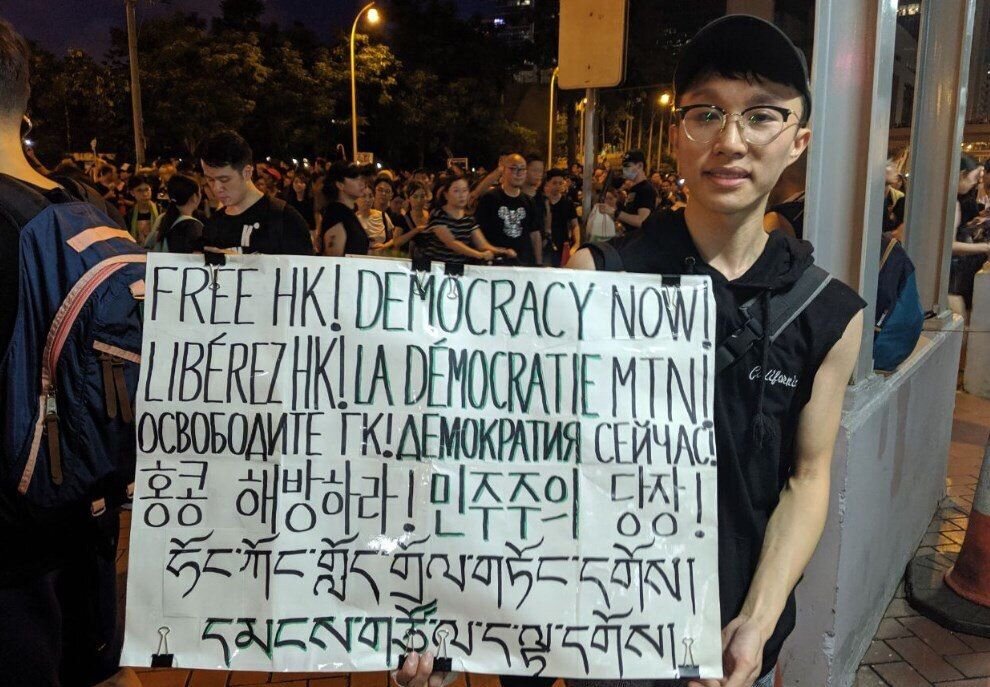 FREE HK! DEMOCRACY NOW!
LIBÉREZ HK! LA DÉMOCRATIE MTN!
ОСВОБОДИТЕ ГК! ДЕМОКРАТИЯ СЕЙЧАС!
홍콩 해방하라! 민주주의 당장!
ཧོང་ཀོང་གློད་གྲོལ་གཏོང་དགོས།
དམངས་གཙོ་ལ་ད་ལྟ་དགོས།
California